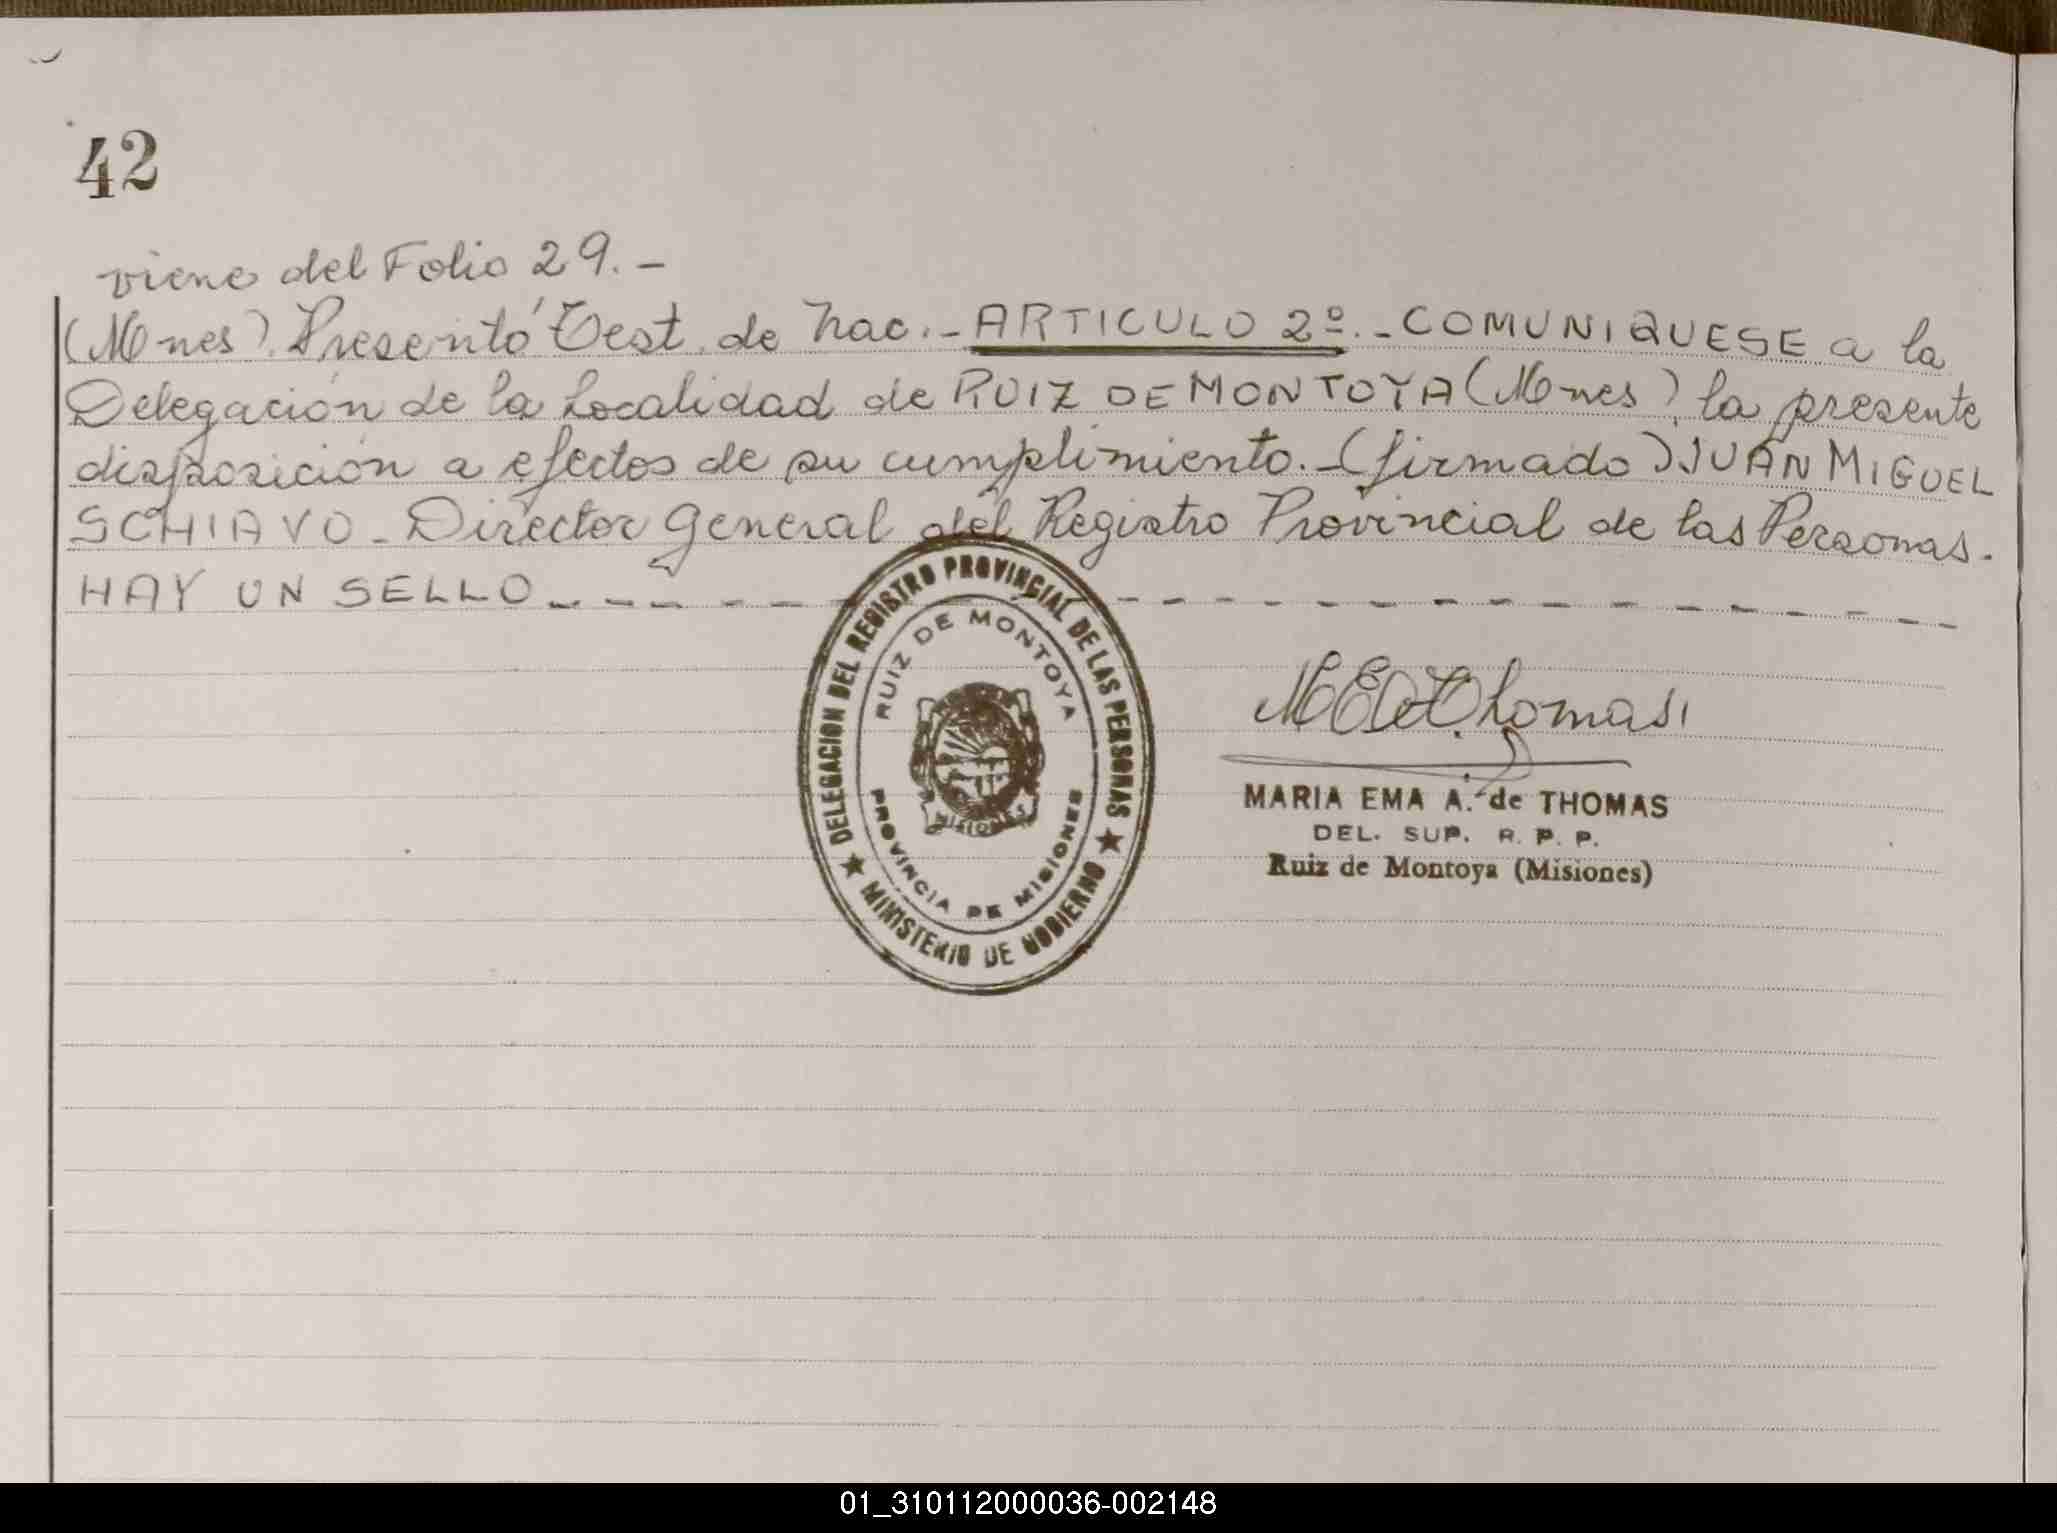 42
viene del Folio 29.-
(Mnes). Presentó Test. de nac.- ARTICULO 2º.- COMUNIQUESE a la
Delegación de la Localidad de RUIZ DE MONTOYA (Mnes), la presente
disposición a efectos de su cumplimiento.- (firmado) JUAN MIGUEL
SCHIAVO - Director General del Registro Provincial de las Personas.
HAY UN SELLO
DELEGACION DEL REGISTRO PROVINCIAL DE LAS PERSONAS
RUIZ DE MONTOYA
MISIONES
PROVINCIA DE MISIONES
★ MINISTERIO DE GOBIERNO ★
Thomas
MARIA EMA A. de THOMAS
DEL. SUP. R. P. P.
Ruiz de Montoya (Misiones)
01_310112000036-002148